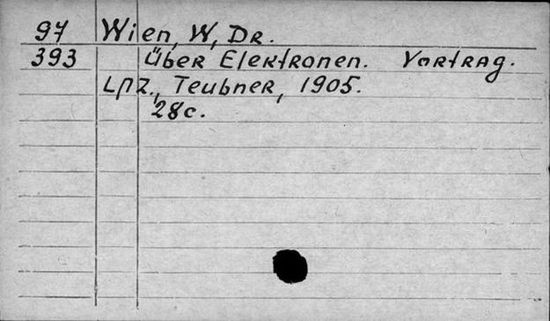 97 Wien, W, Dr.
393 Über Elektronen. Vortrag.
Lpz., Teubner, 1905.
28c.